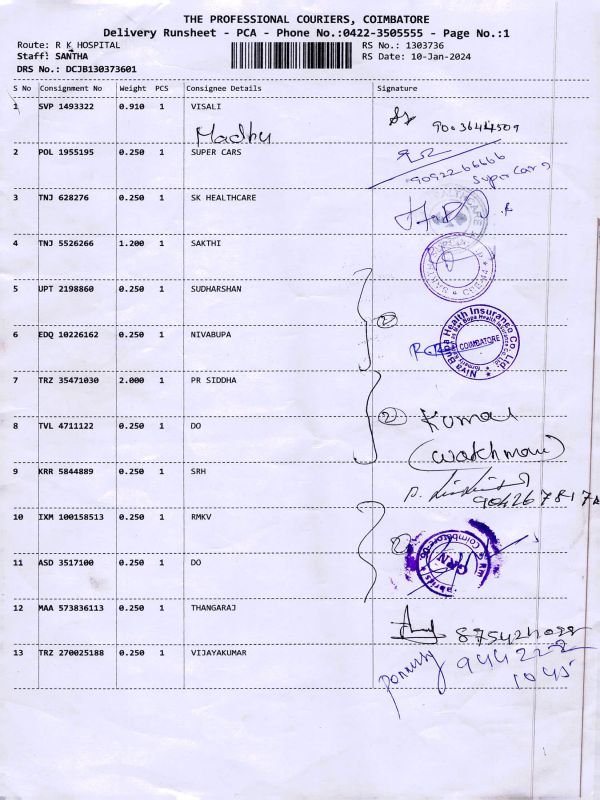 THE PROFESSIONAL COURIERS, COIMBATORE
Delivery Runsheet - PCA - Phone No.:0422-3505555 - Page No.:1
Route: R K HOSPITAL
RS No.: 1303736
Staff: SANTHA
RS Date: 10-Jan-2024
DRS No.: DCJB130373601
S No Consignment No Weight PCS Consignee Details Signature
1 SVP 1493322 0.910 1 VISALI
Madhu
9003644507
2 POL 1955195 0.250 1 SUPER CARS
9092266666
Super Cars
3 TNJ 628276 0.250 1 SK HEALTHCARE
4 TNJ 5526266 1.200 1 SAKTHI
5 UPT 2198860 0.250 1 SUDHARSHAN
2
6 EDQ 10226162 0.250 1 NIVABUPA
Niva Bupa Health Insurance Co. Ltd.
COIMBATORE
7 TRZ 35471030 2.000 1 PR SIDDHA
2 Kumar
8 TVL 4711122 0.250 1 DO
(watchman)
9 KRR 5844889 0.250 1 SRH
10 IXM 100158513 0.250 1 RMKV
2
11 ASD 3517100 0.250 1 DO
GRN
12 MAA 573836113 0.250 1 THANGARAJ
13 TRZ 270025188 0.250 1 VIJAYAKUMAR
944222
1045